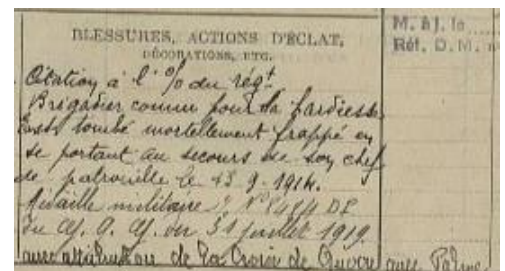 BLESSURES, ACTIONS D'ÉCLAT,
DÉCORATIONS, ETC.
M. àJ. le
Réf. D. M.
Citation à l' % du régt
Brigadier connu pour sa hardiesse
Est tombé mortellement frappé en
se portant au secours de son chef
de patrouille le 13 9.1914.
Médaille militaire
du 31 juillet 1919
avec attribution de la Croix de Guerre avec Palme